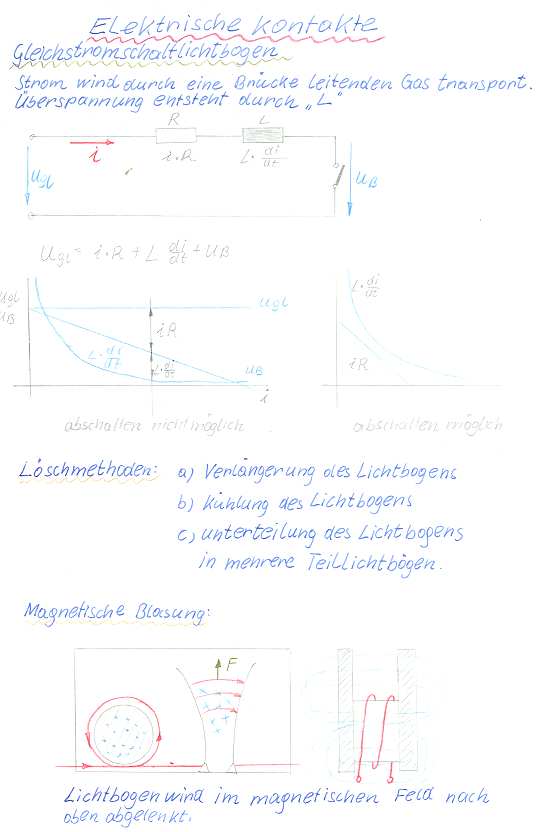 Elektrische Kontakte
Gleichstromschaltlichtbogen
Strom wird durch eine Brücke leitenden Gas transport.
Überspannung entsteht durch „L"
R L
i
i·R L·di/dt
Ugl UB
Ugl = i·R + L di/dt + UB
Ugl
UB
Ugl
iR
L·di/dt
L·di/dt
UB
i
L·di/dt
iR
abschalten nicht möglich
abschalten möglich
Löschmethoden: a) Verlängerung des Lichtbogens
b) Kühlung des Lichtbogens
c) unterteilung des Lichtbogens
in mehrere Teillichtbögen.
Magnetische Blasung:
F
Lichtbogen wird im magnetischen Feld nach
oben abgelenkt.